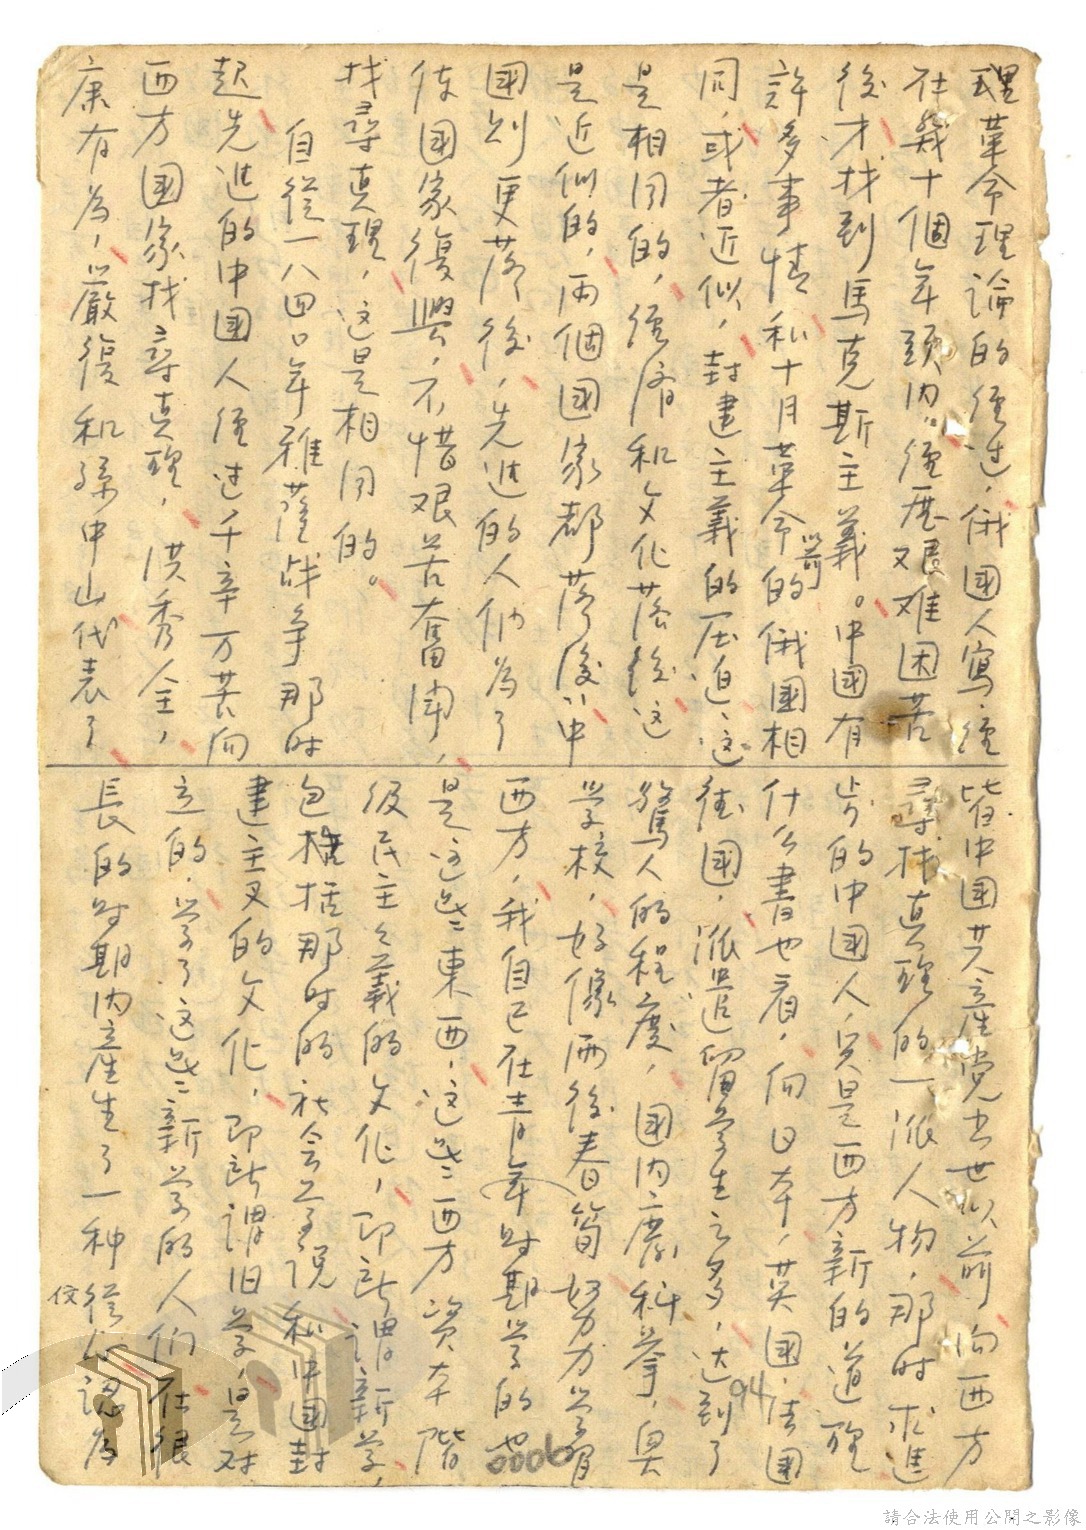 理革命理論的經过，俄國人寫：「經
在幾十個年頭内，經歷艰难困苦
後才找到馬克斯主義。中國有
許多事情和十月革命以前的俄國相
同，或者近似，封建主義的压迫，这
是相同的，經済和文化落後，这
是近似的，兩個國家都落後，中
國則更落後，先進的人们為了
使國家復興，不惜艰苦奮鬥，
找尋真理，这是相同的。
自從一八四〇年雅蔭战争那时
起先進的中國人經过千辛万苦向
西方國家找尋真理，洪秀全，
康有為，嚴復和孫中山代表了
皆中国共産党出世以前向西方
尋找真理的一派人物，那时求進
步的中國人，只是西方新的道理
什么書也看，向日本，英國，法國
德國，派遣留学生之多，达到了
驚人的程度，國内廢科拳，奥
学校，好像雨後春筍努力学習
西方，我自己在青年时期学的也
是这些東西，这些西方資本階
级民主主義的文化，即所謂新学，
包括那时的社会学説和中國封
建主义的文化，即所謂旧学，是对
立的，学了这些新学的人们，在很
長的时期内産生了一种信心認為
94
0006
請合法使用公開之影像